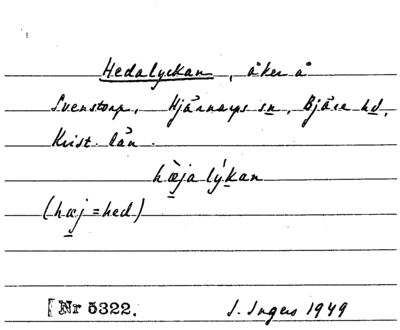 Hedalyckan, åker å
Svenstorp, Hjärnarps sn, Bjäre hd,
Krist. län.
hæ̀ja lýkan
(hæj = hed)
[Nr 5322. I. Ingers 1949